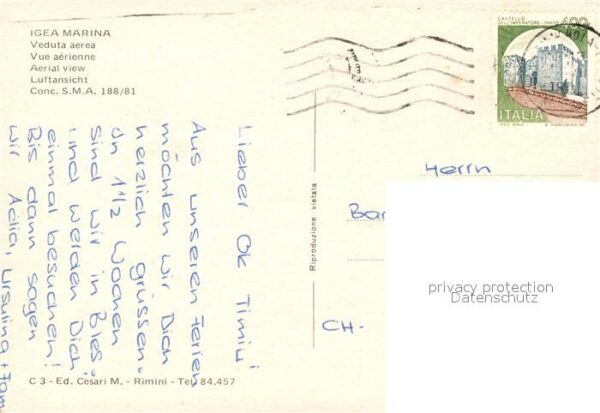 IGEA MARINA
Veduta aerea
Vue aérienne
Aerial view
Luftansicht
Conc. S.M.A. 188/81
CASTELLO
DELL'IMPERATORE - PRATO
400
ITALIA
Lieber Ok Timiu!
Aus unseren Ferien
möchten wir Dich
herzlich grüssen.
In 1 1/2 Wochen
sind wir in Bles.
und werden Dich
einmal besuchen!
Bis dann sagen
wir Adia, Ursulina + Fam
Riproduzione vietata
Herrn
Bar
CH-
privacy protection
Datenschutz
C 3 - Ed. Cesari M. - Rimini - Tel. 84.457